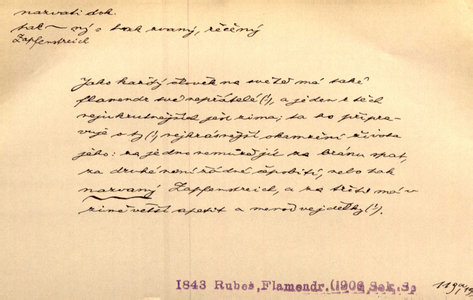 nazvati dok.
tak-ný o tak zvaný, řečený
Zapfenstreich
Jako každý člověk na světě má také
flamendr své nepřátelé (!), a jeden z těch
nejukrutnějších jest zima; ta ho připra-
vuje o ty (!) nejkrásnější okamžení života
jeho: za jedno nemůže jít za bránu spat,
za druhé není žádné špobití, nebo tak
nazvaný Zapfenstreich, a za třetí má v
zimě větší apetit a nerad vejdělky (!).
1843 Rubeš, Flamendr. (1906 Seb. S.